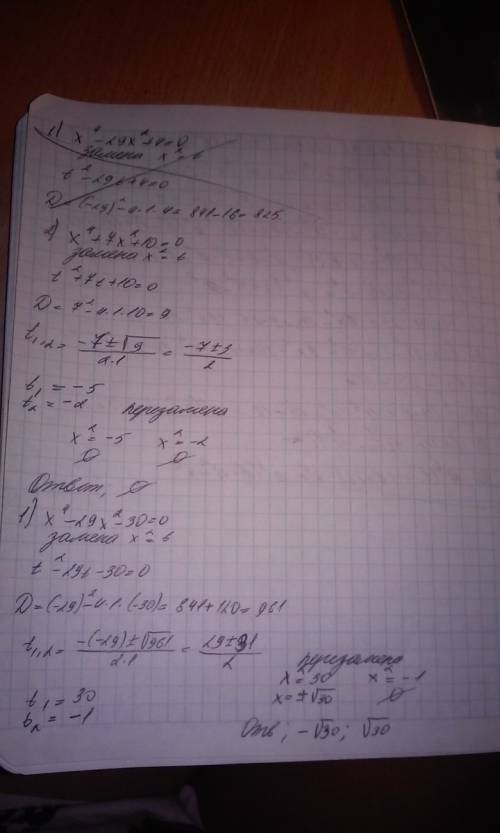 1) x⁴-29x²+4=0
замена x²=t
t²-29t+4=0
D=(-29)²-4·1·4=841-16=825
2) x⁴+7x²+10=0
замена x²=t
t²+7t+10=0
D=7²-4·1·10=9
t₁,₂=(-7±√9)/(2·1)=(-7±3)/2
t₁=-5
t₂=-2 перезамена
x²=-5 x²=-2
∅ ∅
Ответ, ∅
1) x⁴-29x²-30=0
замена x²=t
t²-29t-30=0
D=(-29)²-4·1·(-30)=841+120=961
t₁,₂=(-(-29)±√961)/(2·1)=(29±31)/2
перезамена
x²=30 x²=-1
x=±√30 ∅
t₁=30
t₂=-1
Отв; -√30; √30